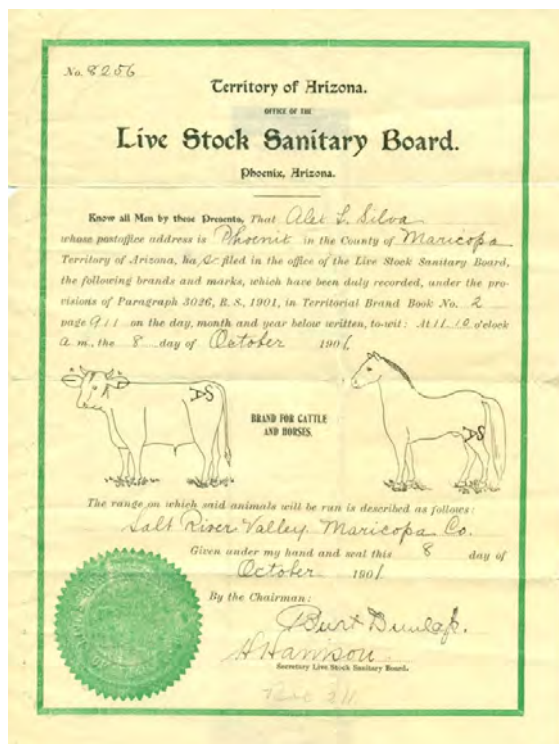 No. 8256
Territory of Arizona.
OFFICE OF THE
Live Stock Sanitary Board.
Phoenix, Arizona.
Know all Men by these Presents, That Alex L. Silva
whose postoffice address is Phoenix in the County of Maricopa
Territory of Arizona, has filed in the office of the Live Stock Sanitary Board,
the following brands and marks, which have been duly recorded, under the pro-
visions of Paragraph 3026, R. S., 1901, in Territorial Brand Book No. 2
page 911 on the day, month and year below written, to-wit: At 11.10 o'clock
a m., the 8 day of October 1901.
AS
BRAND FOR CATTLE
AND HORSES.
AS
The range on which said animals will be run is described as follows:
Salt River Valley. Maricopa Co.
Given under my hand and seal this 8 day of
October 1901.
By the Chairman:
Burt Dunlap.
H Harrison
Secretary Live Stock Sanitary Board.